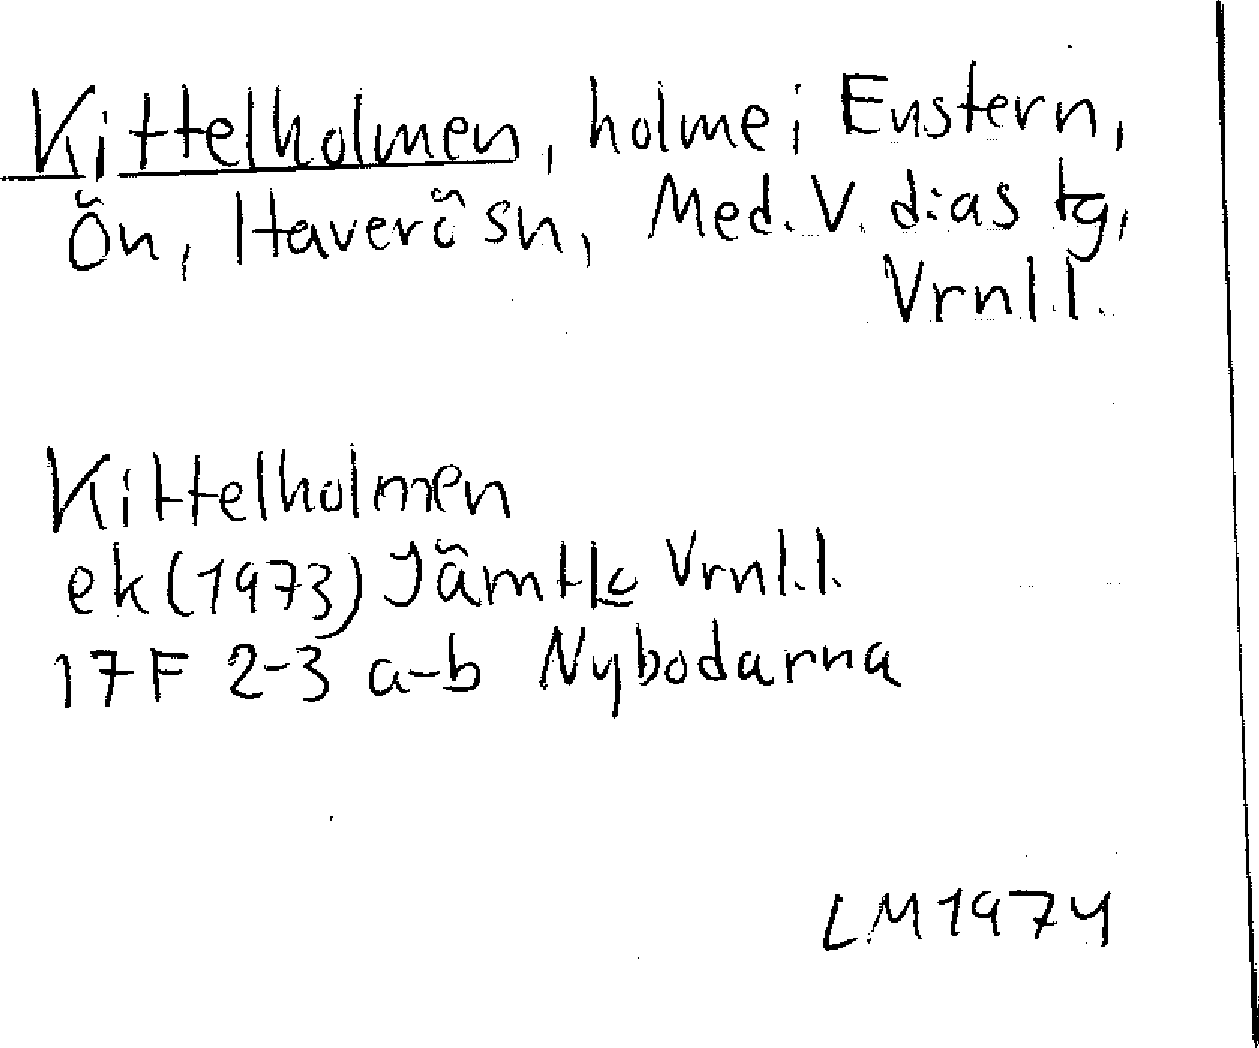 Kittelholmen, holme i Enstern,
Ön, Haverö sn, Med. V. d:as tg,
Vrnl.l.
Kittelholmen
ek (1973) Jämtl Vrnl.l.
17F 2-3 a-b Nybodarna
LM 1974